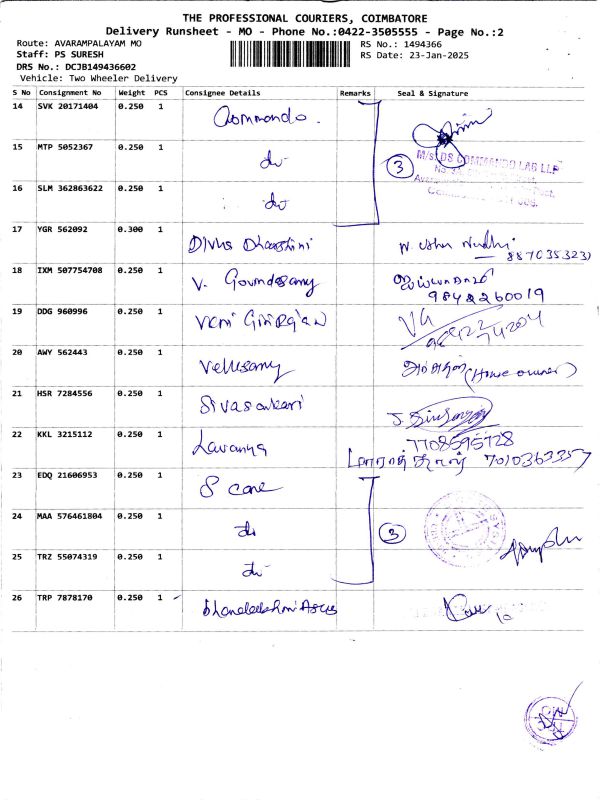 THE PROFESSIONAL COURIERS, COIMBATORE
Delivery Runsheet - MO - Phone No.:0422-3505555 - Page No.:2
Route: AVARAMPALAYAM MO RS No.: 1494366
Staff: PS SURESH RS Date: 23-Jan-2025
DRS No.: DCJB149436602
Vehicle: Two Wheeler Delivery
S No Consignment No Weight PCS Consignee Details Remarks Seal & Signature
14 SVK 20171404 0.250 1 Commando.
15 MTP 5052367 0.250 1 do 3 M/s. DS COMMANDO LAB LLP
16 SLM 362863622 0.250 1 do
17 YGR 562092 0.300 1 Divya Dharshini
18 IXM 507754708 0.250 1 V. Govindasamy
9842260019
19 DDG 960996 0.250 1
20 AWY 562443 0.250 1 Velusamy (House owner)
21 HSR 7284556 0.250 1 Sivasankari
22 KKL 3215112 0.250 1 Lavanya 7708595728
7010363357
23 EDQ 21606953 0.250 1 S care
24 MAA 576461804 0.250 1 do 3
25 TRZ 55074319 0.250 1 do
26 TRP 7878170 0.250 1